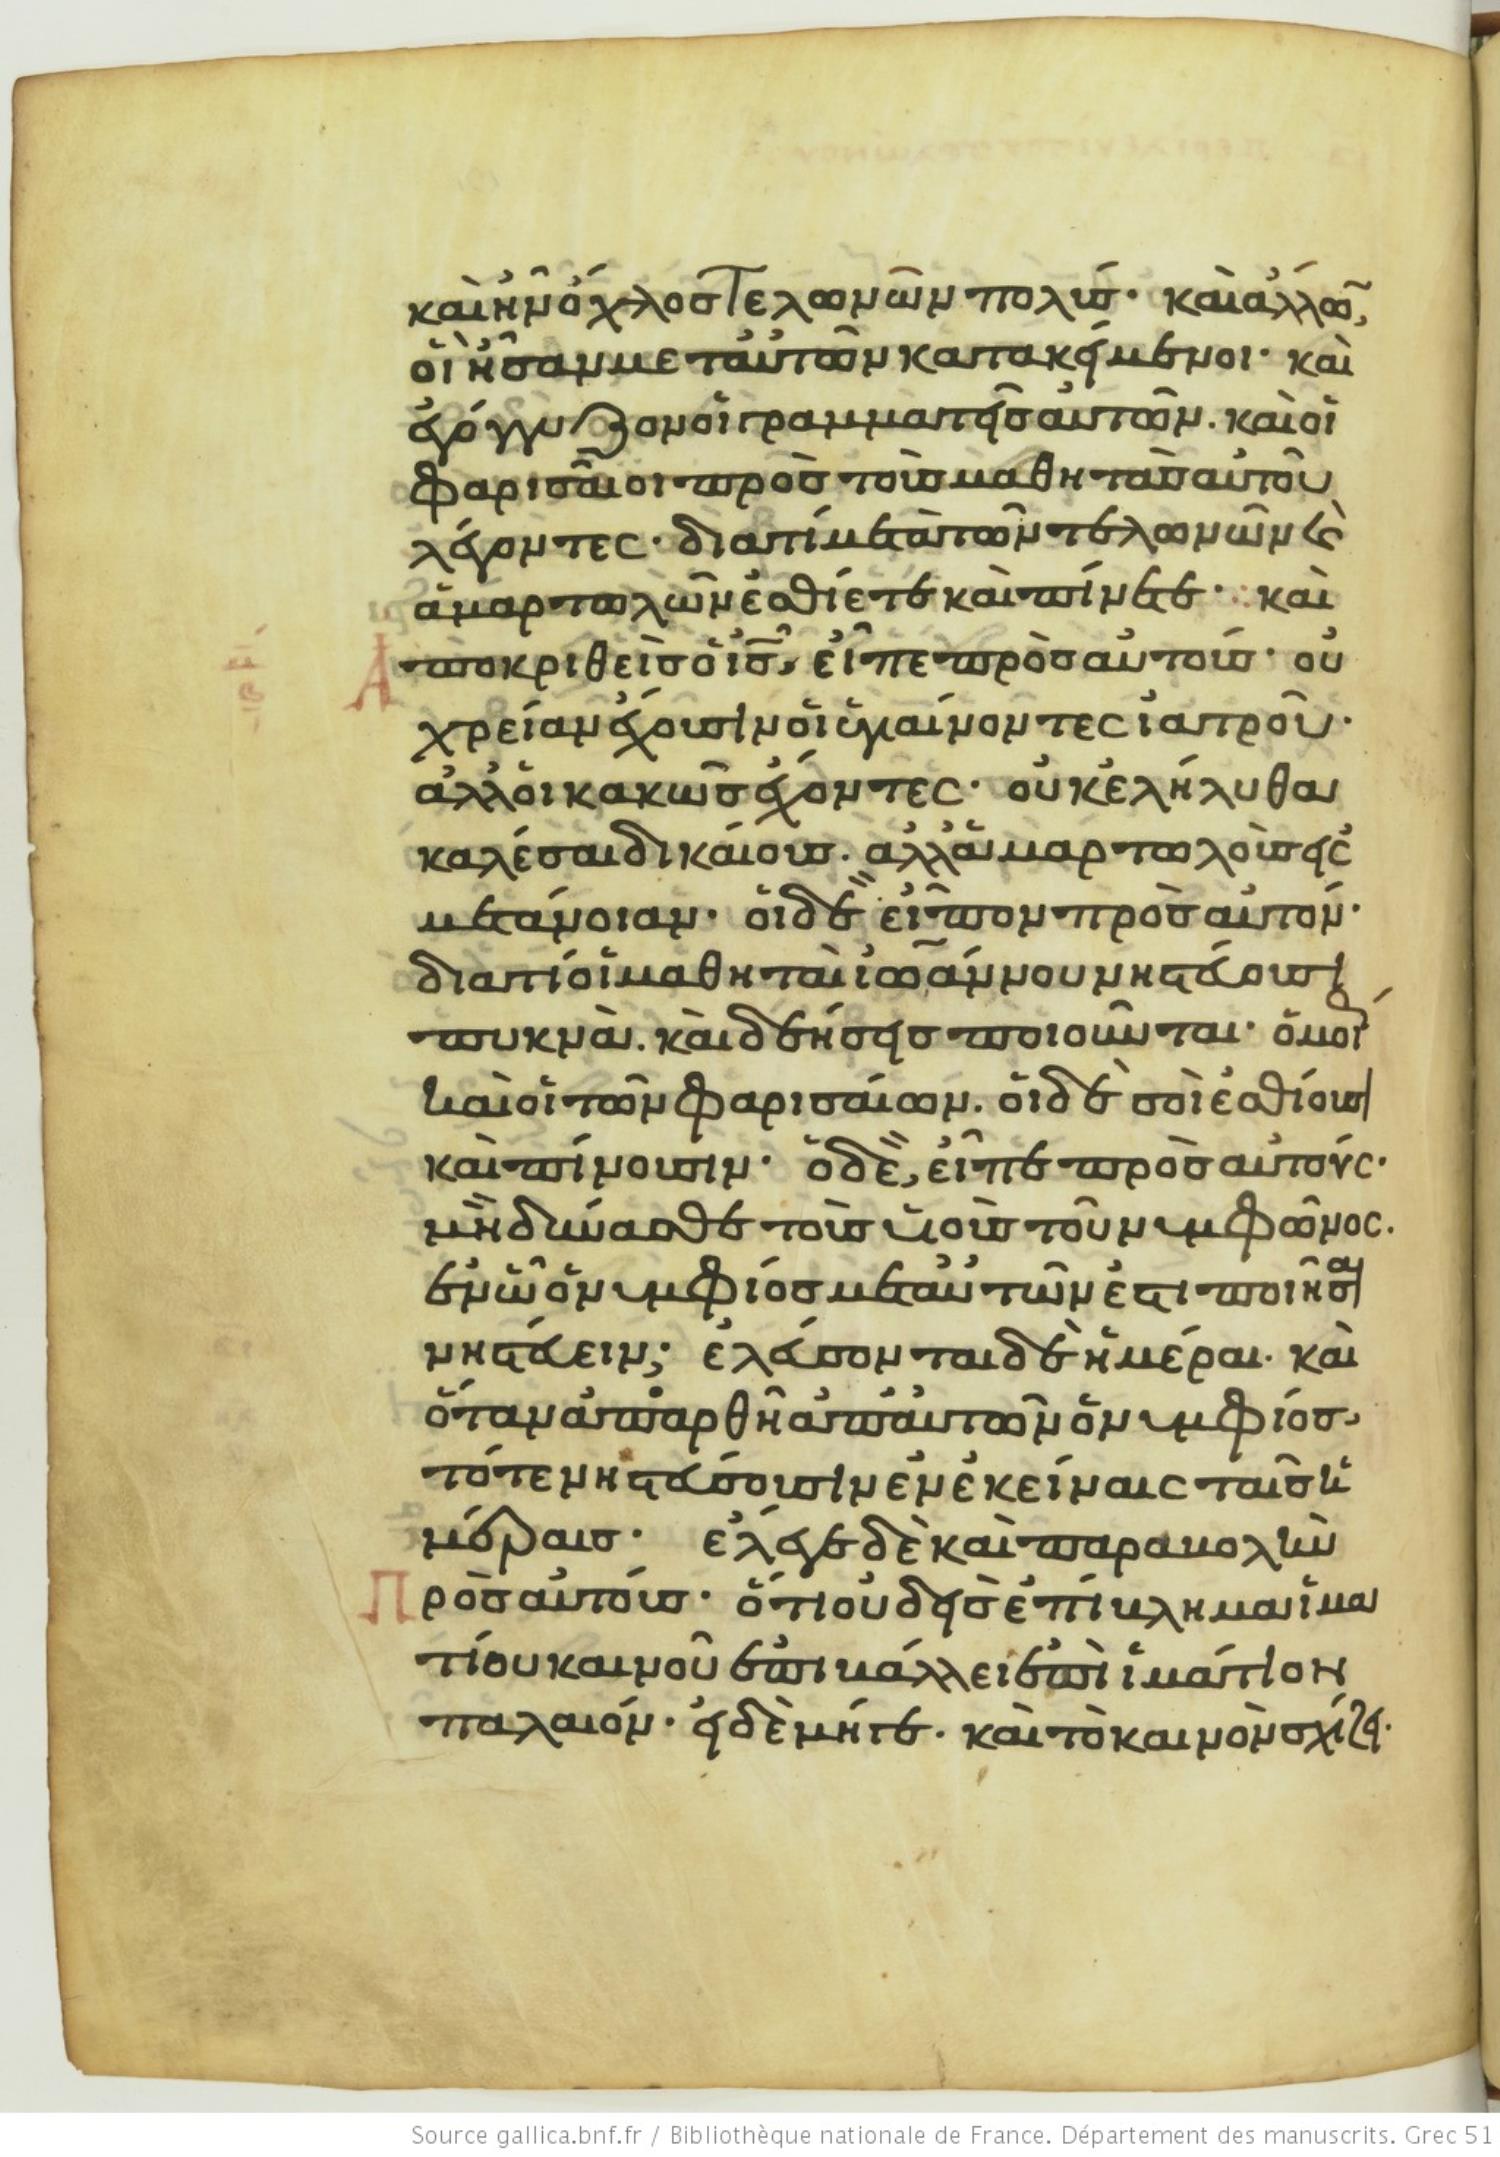 καὶ ἦν ὄχλος τελωνῶν πολύς· καὶ ἄλλων,
οἳ ἦσαν μετ' αὐτῶν κατακείμενοι· καὶ
ἐγόγγυζον οἱ γραμματεῖς αὐτῶν. καὶ οἱ
φαρισαῖοι πρὸς τοὺς μαθητὰς αὐτοῦ
λέγοντες· διατί μετὰ τῶν τελωνῶν κὶ
ἁμαρτωλῶν ἐσθίετε καὶ πίνετε· καὶ
Ἀποκριθεὶς ὁ ις, εἶπε πρὸς αὐτούς· οὐ
χρείαν ἔχουσιν οἱ ὑγιαίνοντες ἰατροῦ·
ἀλλ' οἱ κακῶς ἔχοντες· οὐκ ἐλήλυθα
καλέσαι δικαίους. ἀλλὰ ἁμαρτωλοὺς εἰς
μετάνοιαν· οἱ δὲ εἶπον πρὸς αὐτόν·
διατί οἱ μαθηταὶ ἰωάννου νηστεύουσι
πυκνὰ. καὶ δεήσεις ποιοῦνται· ὁμοί
καὶ οἱ τῶν φαρισαίων. οἱ δὲ σοὶ ἐσθίουσι
καὶ πίνουσιν· ὁ δὲ, εἶπε πρὸς αὐτούς·
μὴ δύνασθε τοὺς υἱοὺς τοῦ νυμφῶνος.
ἐν ᾧ ὁ νυμφίος μετ' αὐτῶν ἐστι ποιῆσαι
νηστεύειν; ἐλεύσονται δὲ ἡμέραι. καὶ
ὅταν ἀπαρθῆ ἀπ' αὐτῶν ὁ νυμφίος,
τότε νηστεύσουσιν ἐν ἐκείναις ταῖς ἡ
μέραις· ἔλεγε δὲ καὶ παραβολὴν
Πρὸς αὐτούς· ὅτι οὐδεὶς ἐπίβλημα ἱμα
τίου καινοῦ ἐπιβάλλει ἐπὶ ἱμάτιον
παλαιόν· εἰ δὲ μήγε. καὶ τὸ καινὸν σχίζει·
Source gallica.bnf.fr / Bibliothèque nationale de France. Département des manuscrits. Grec 51